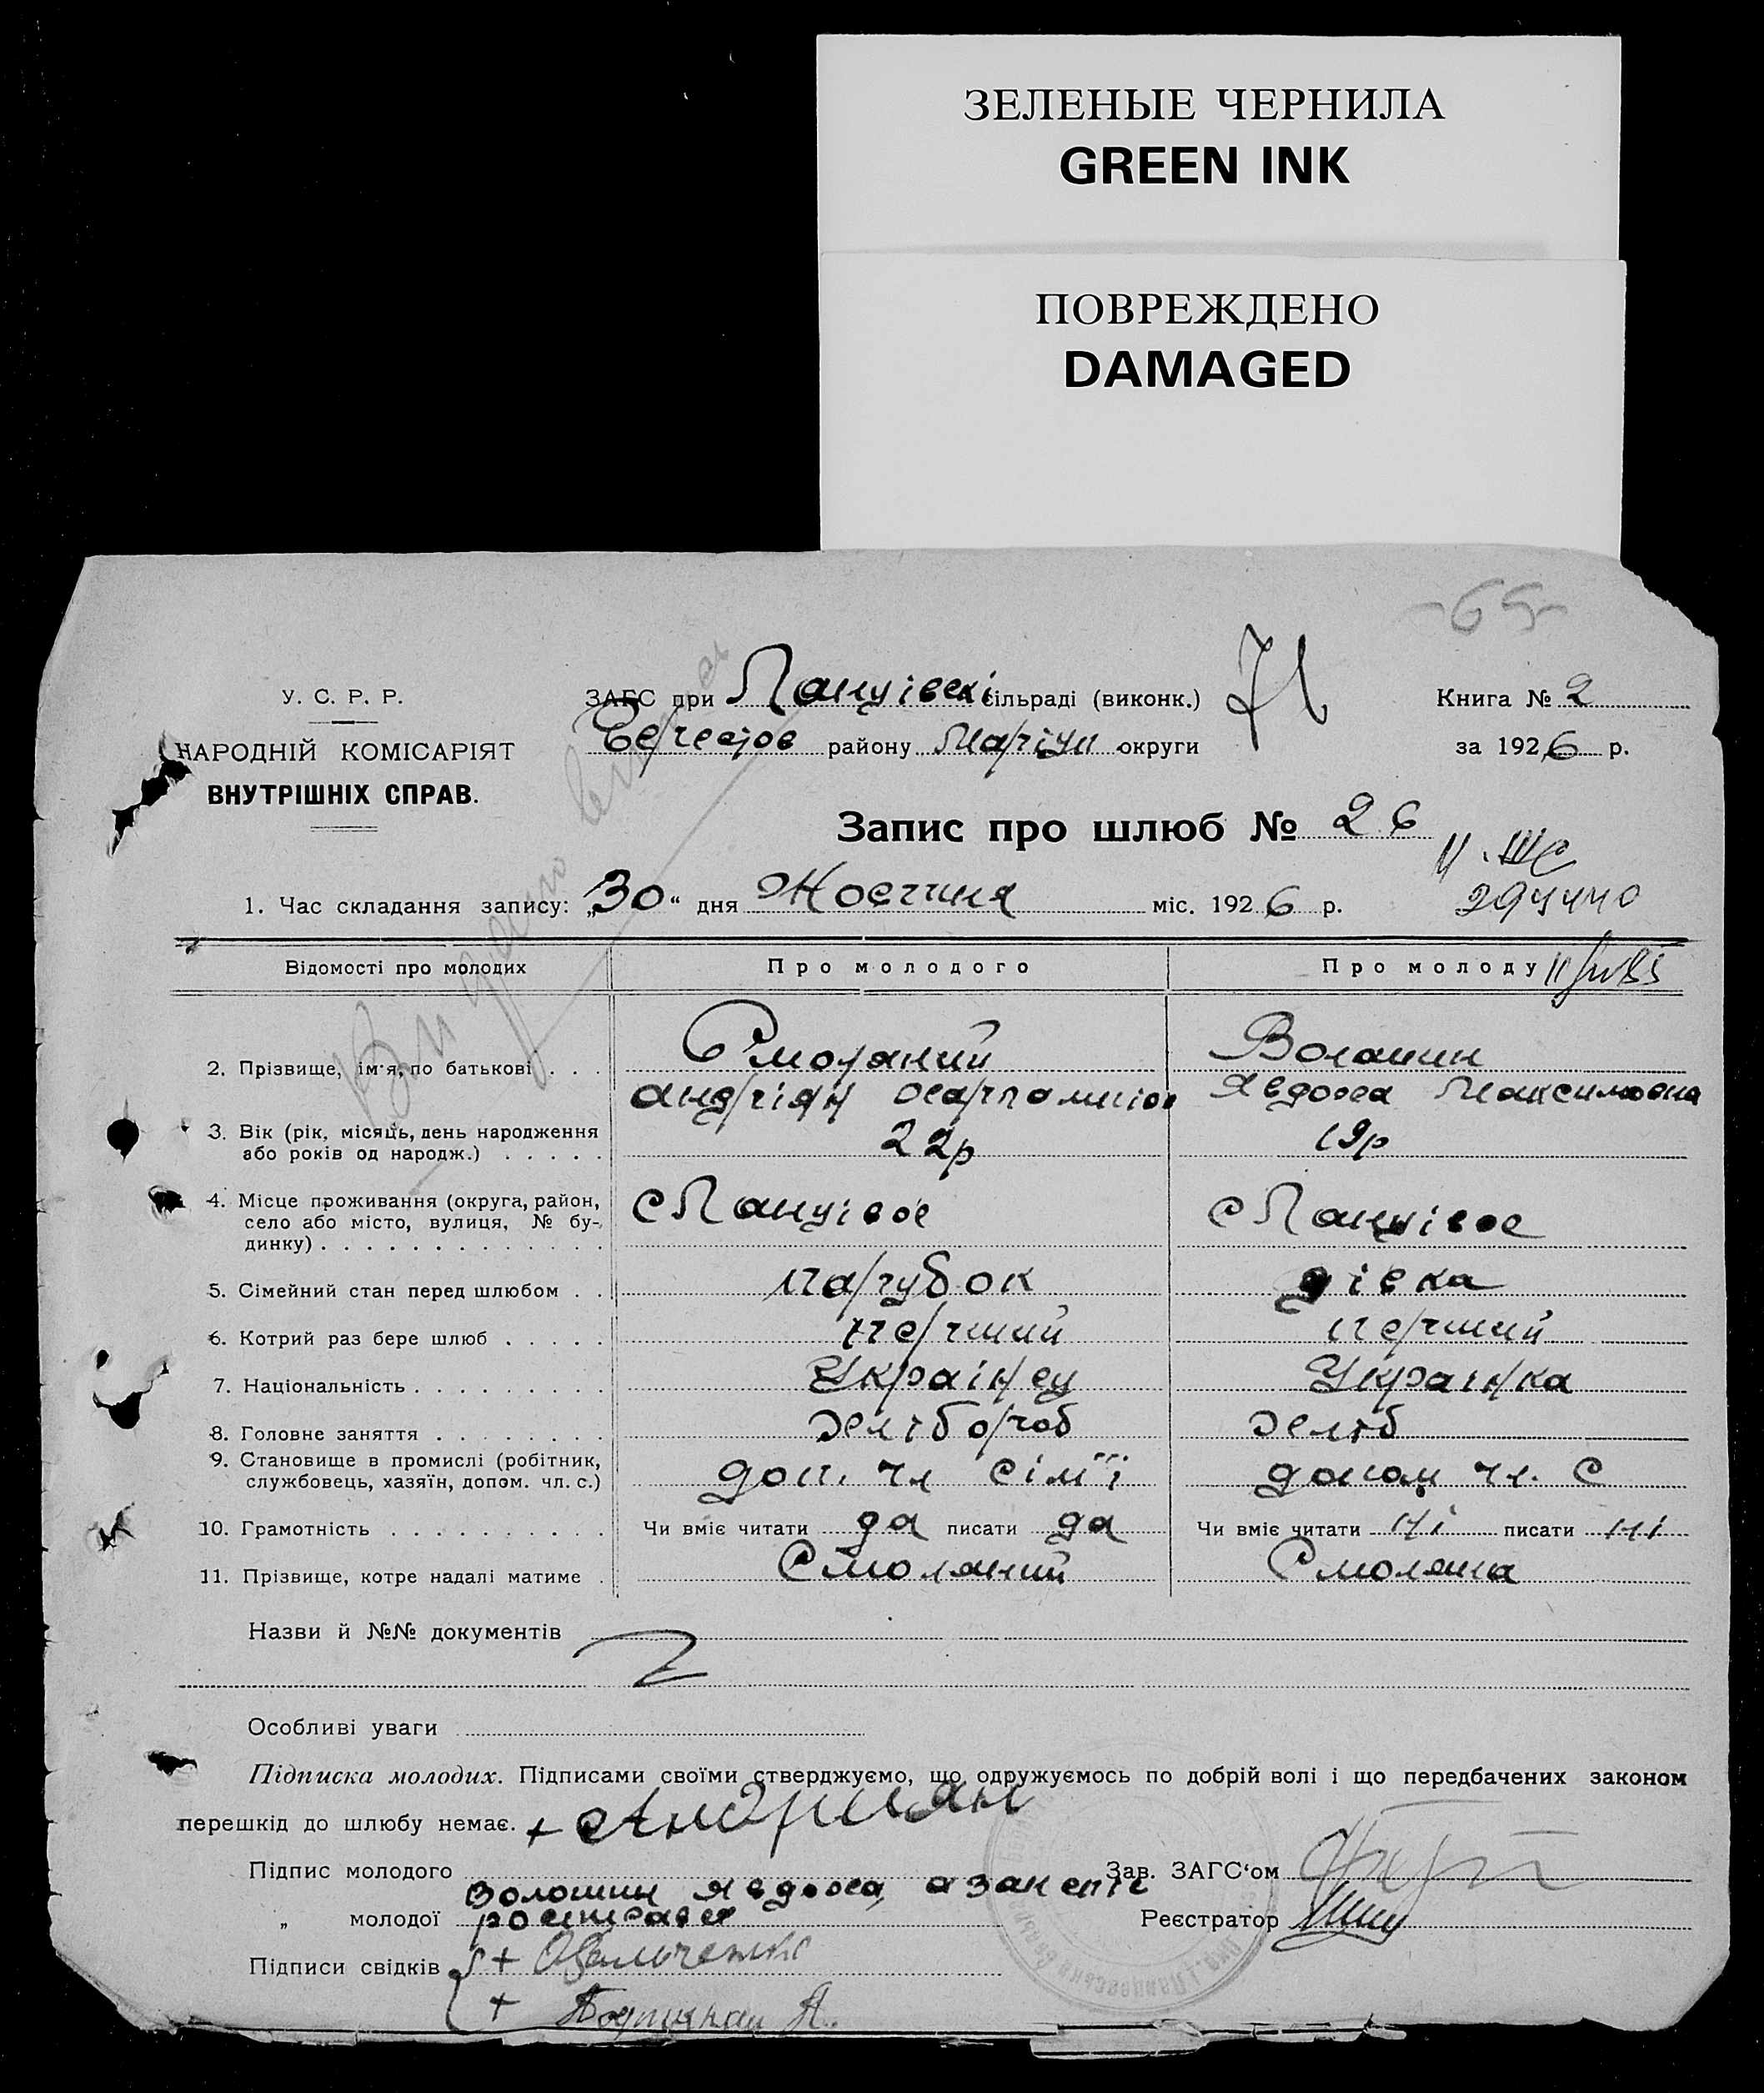 ЗЕЛЕНЫЕ ЧЕРНИЛА
GREEN INK
ПОВРЕЖДЕНО
DAMAGED
-65-
У. С. Р. Р.
НАРОДНІЙ КОМІСАРІЯТ
ВНУТРІШНІХ СПРАВ.
ЗАГС при Ланцівскі сільраді (виконк.)
71
Книга № 2
Берестов району Маріуп округи
за 1926 р.
Запис про шлюб № 26
1. Час складання запису: „30“ дня Жостня міс. 1926 р.
Відомості про молодих
Про молодого
Про молоду
2. Прізвище, ім'я, по батькові . . . Смоляний Волошин
Андріян Харлампіов Явдоха Максимовна
3. Вік (рік, місяць, день народження
або років од народж.) . . . . . 22р 19р
4. Місце проживання (округа, район,
село або місто, вулиця, № бу-
динку) . . . . . . . . . . . . . с Ланцівос с Ланцівое
5. Сімейний стан перед шлюбом . . парубок дівка
6. Котрий раз бере шлюб . . . . . перший перший
7. Національність . . . . . . . . . Українец Українка
8. Головне заняття . . . . . . . . хлібороб хліб
9. Становище в промислі (робітник,
службовець, хазяїн, допом. чл. с.) доп. чл сім'ї допом чл. с
10. Грамотність . . . . . . . . . . Чи вміє читати да писати да Чи вміє читати ні писати ні
11. Прізвище, котре надалі матиме . Смоляний Смоляна
Назви й №№ документів
Особливі уваги
Підписка молодих. Підписами своїми стверджуємо, що одружуємось по добрій волі і що передбачених законом
перешкід до шлюбу немає. + Андриян
Підпис молодого
Зав. ЗАГС'ом
Волошин Явдоха, а за неї
„ молодої
Реєстратор
Підписи свідків